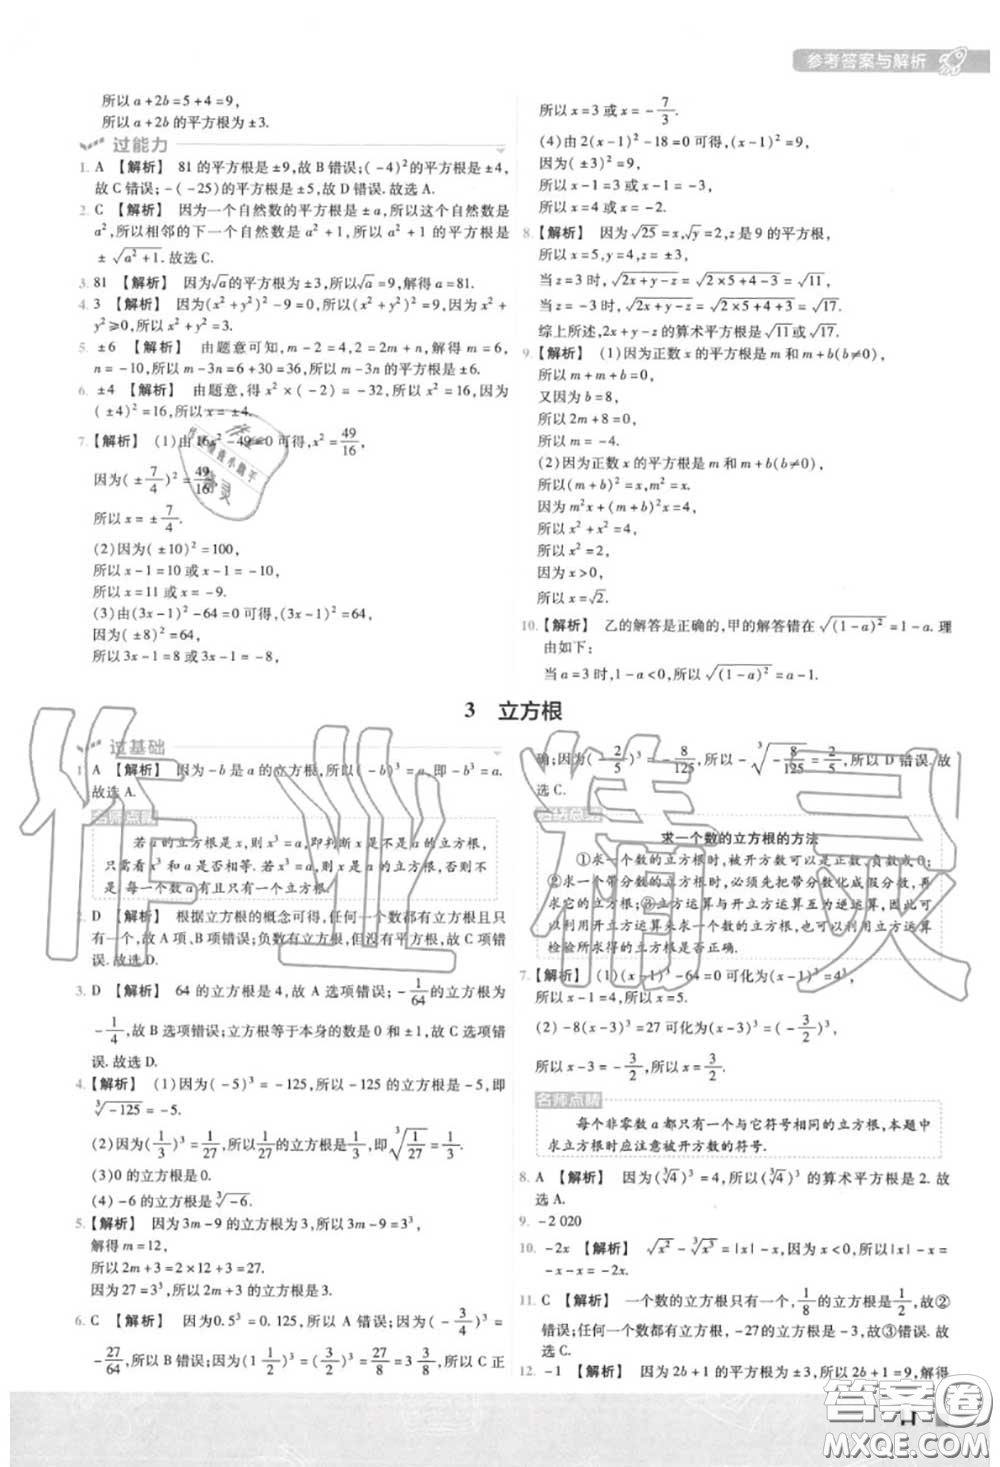 参考答案与解析
所以 a+2b=5+4=9,
所以 a+2b 的平方根为 ±3.
过能力
1. A 【解析】 81 的平方根是 ±9,故 B 错误;(-4)²的平方根是 ±4,
故 C 错误;-(-25)的平方根是 ±5,故 D 错误.故选 A.
2. C 【解析】 因为一个自然数的平方根是 ±a,所以这个自然数是
a²,所以相邻的下一个自然数是 a²+1,所以 a²+1 的平方根是
±√(a²+1).故选 C.
3. 81 【解析】 因为√a的平方根是 ±3,所以√a=9,解得 a=81.
4. 3 【解析】 因为(x²+y²)²-9=0,所以(x²+y²)²=9,因为 x²+
y²≥0,所以 x²+y²=3.
5. ±6 【解析】 由题意可知,m-2=4,2=2m+n,解得 m=6,
n=-10,所以 m-3n=6+30=36,所以 m-3n的平方根是 ±6.
6. ±4 【解析】 由题意,得 x²×(-2)=-32,所以 x²=16,因为
(±4)²=16,所以 x=±4.
7. 【解析】 (1)由 16x²-49=0 可得,x²=49/16,
因为(±7/4)²=49/16,
所以 x=±7/4.
(2)因为(±10)²=100,
所以 x-1=10 或 x-1=-10,
所以 x=11 或 x=-9.
(3)由(3x-1)²-64=0 可得,(3x-1)²=64,
因为(±8)²=64,
所以 3x-1=8 或 3x-1=-8,
所以 x=3 或 x=-7/3.
(4)由 2(x-1)²-18=0 可得,(x-1)²=9,
因为(±3)²=9,
所以 x-1=3 或 x-1=-3,
所以 x=4 或 x=-2.
8. 【解析】 因为√25=x,√y=2,z是 9 的平方根,
所以 x=5,y=4,z=±3,
当 z=3 时,√(2x+y-z)=√(2×5+4-3)=√11,
当 z=-3 时,√(2x+y-z)=√(2×5+4+3)=√17.
综上所述,2x+y-z 的算术平方根是√11或√17.
9. 【解析】 (1)因为正数 x 的平方根是 m 和 m+b(b≠0),
所以 m+m+b=0,
又因为 b=8,
所以 2m+8=0,
所以 m=-4.
(2)因为正数 x 的平方根是 m和 m+b(b≠0),
所以(m+b)²=x,m²=x,
因为 m²x+(m+b)²x=4,
所以 x²+x²=4,
所以 x²=2,
因为 x>0,
所以 x=√2.
10. 【解析】 乙的解答是正确的,甲的解答错在√((1-a)²)=1-a.理
由如下:
当 a=3 时,1-a<0,所以√((1-a)²)=a-1.
3 立方根
过基础
1. A 【解析】 因为-b是 a 的立方根,所以(-b)³=a,即-b³=a.
故选 A.
名师点睛
若 x 是 a 的立方根,则 x³=a,即判断 x 是不是 a 的立方根,
只需看 x³ 和 a 是否相等.若 x³=a,则 x 是 a 的立方根,
每一个数 a 有且只有一个立方根.
2. D 【解析】 根据立方根的概念可得,任何一个数都有立方根且只
有一个,故 A 项、B 项错误;负数有立方根,但没有平方根,故 C 项错
误.故选 D.
3. D 【解析】 64 的立方根是 4,故 A 选项错误;-1/64的立方根为
-1/4,故 B 选项错误;立方根等于本身的数是 0 和 ±1,故 C 选项错
误.故选 D.
4. 【解析】 (1)因为(-5)³=-125,所以-125 的立方根是-5,即
∛-125=-5.
(2)因为(1/3)³=1/27,所以1/27的立方根是1/3,即∛(1/27)=1/3.
(3)0 的立方根是 0.
(4)-6 的立方根是∛-6.
5. 【解析】 因为 3m-9 的立方根为 3,所以 3m-9=3³,
解得 m=12,
所以 2m+3=2×12+3=27.
因为 27=3³,所以 2m+3 的立方根是 3.
6. C 【解析】 因为 0.5³=0.125,所以 A 错误;因为(-3/4)³=
-27/64,所以 B 错误;因为(1 1/2)³=(3/2)³=27/8=3 3/8,所以 C 正
确;因为(-2/5)³=-8/125,所以 ∛(-8/125)=-2/5,所以 D 错误.故
选 C.
名师点睛
求一个数的立方根的方法
①求一个数的立方根时,被开方数可以是正数、负数或 0;
②求一个带分数的立方根时,必须先把带分数化成假分数,再
求它的立方根;③立方运算与开立方运算互为逆运算,因此可
以利用开立方运算求一个数的立方根,也可以利用立方运算
检验所求得的立方根是否正确.
7. 【解析】 (1)(x-1)³-64=0 可化为(x-1)³=4³,
所以 x-1=4,所以 x=5.
(2)-8(x-3)³=27 可化为(x-3)³=(-3/2)³,
所以 x-3=-3/2,所以 x=3/2.
名师点睛
每个非零数 a 都只有一个与它符号相同的立方根,本题中
求立方根时应注意被开方数的符号.
8. A 【解析】 因为(∛4)³=4,所以(∛4)³的算术平方根是 2.故
选 A.
9. -2 020
10. -2x 【解析】 √x²-∛x³=|x|-x,因为 x<0,所以|x|-x=
-x-x=-2x.
11. C 【解析】 一个数的立方根只有一个,1/8的立方根是1/2,故②
错误;任何一个数都有立方根,-27的立方是-3,故③错误.故
选 C.
12. -1 【解析】 因为 2b+1 的平方根为 ±3,所以 2b+1=9,解得
作业精灵
答案圈
MXQE.COM